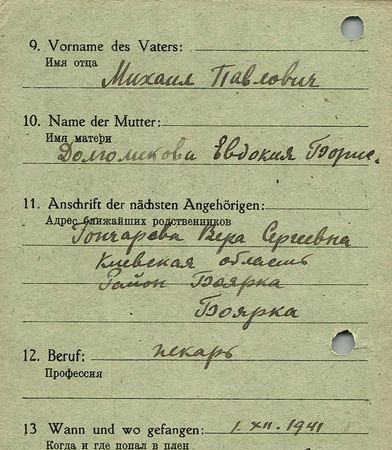 9. Vorname des Vaters:
Имя отца
Михаил Павлович
10. Name der Mutter:
Имя матери
Долгополова Евдокия Борис.
11. Anschrift der nächsten Angehörigen:
Адрес ближайших родственников
Гончарова Вера Сергеевна
Киевская область
Район Боярка
Боярка
12. Beruf: пекарь
Профессия
13 Wann und wo gefangen: 1. XII. 1941
Когда и где попал в плен